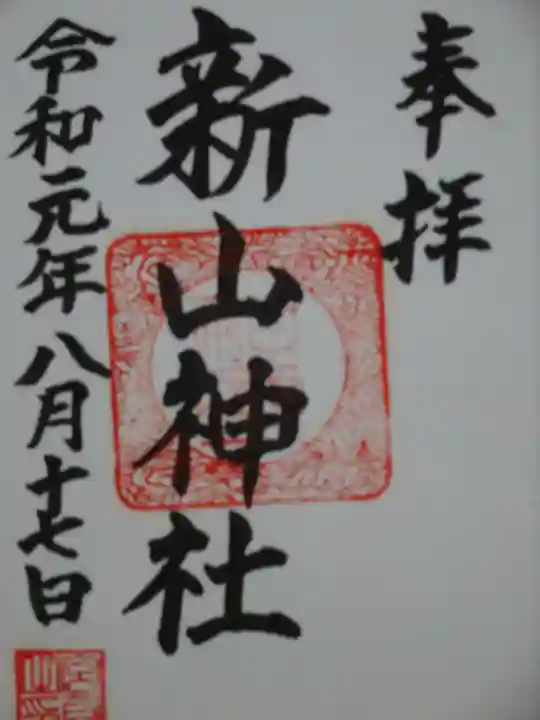 奉拝
新山神社
令和元年八月十七日